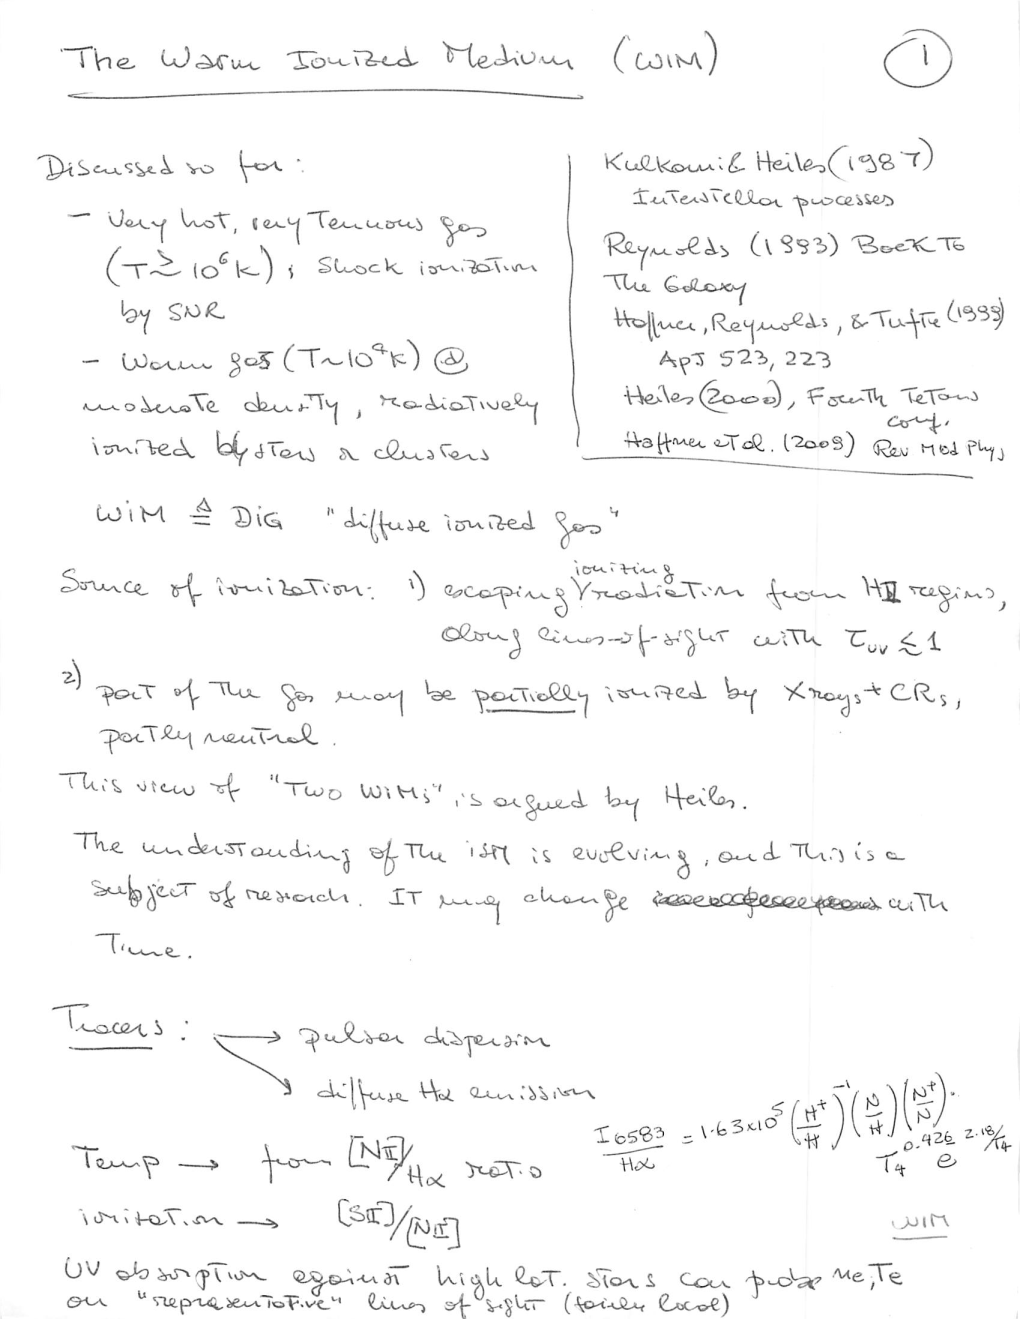 The Warm Ionized Medium (WIM)
1
Discussed so far:
- Very hot, very Tenuous gas
(T ≳ 10⁶ K); Shock ionization
by SNR
- Warm gas (T~10⁴K) @
moderate density, radiatively
ionized by stars or clusters
Kulkarni & Heiles (1987)
Interstellar processes
Reynolds (1993) Back To
The Galaxy
Haffner, Reynolds, & Tufte (1999)
ApJ 523, 223
Heiles (2000), Fourth Tetons
conf.
Haffner et al. (2009) Rev Mod Phys
WIM ≙ DIG "diffuse ionized gas"
Source of ionization: 1) escaping ionizing radiation from HII regions,
along lines-of-sight with τ_uv ≲ 1
2) part of The gas may be partially ionized by Xrays + CRs,
partly neutral.
This view of "Two WIMs", is argued by Heiles.
The understanding of The ISM is evolving, and This is a
subject of research. IT may change with
Time.
Tracers: → pulsar dispersion
↘ diffuse Hα emission
Temp → from [NII]/Hα ratio
I6583/Hα = 1.63x10⁵ (H⁺/H)⁻¹ (N/H) (N⁺/N) · T₄^0.426 e^2.18/T₄
ionization → [SII]/[NII]
WIM
UV absorption against high lat. stars can probe ne, Te
on "representative" lines of sight (fairly local)